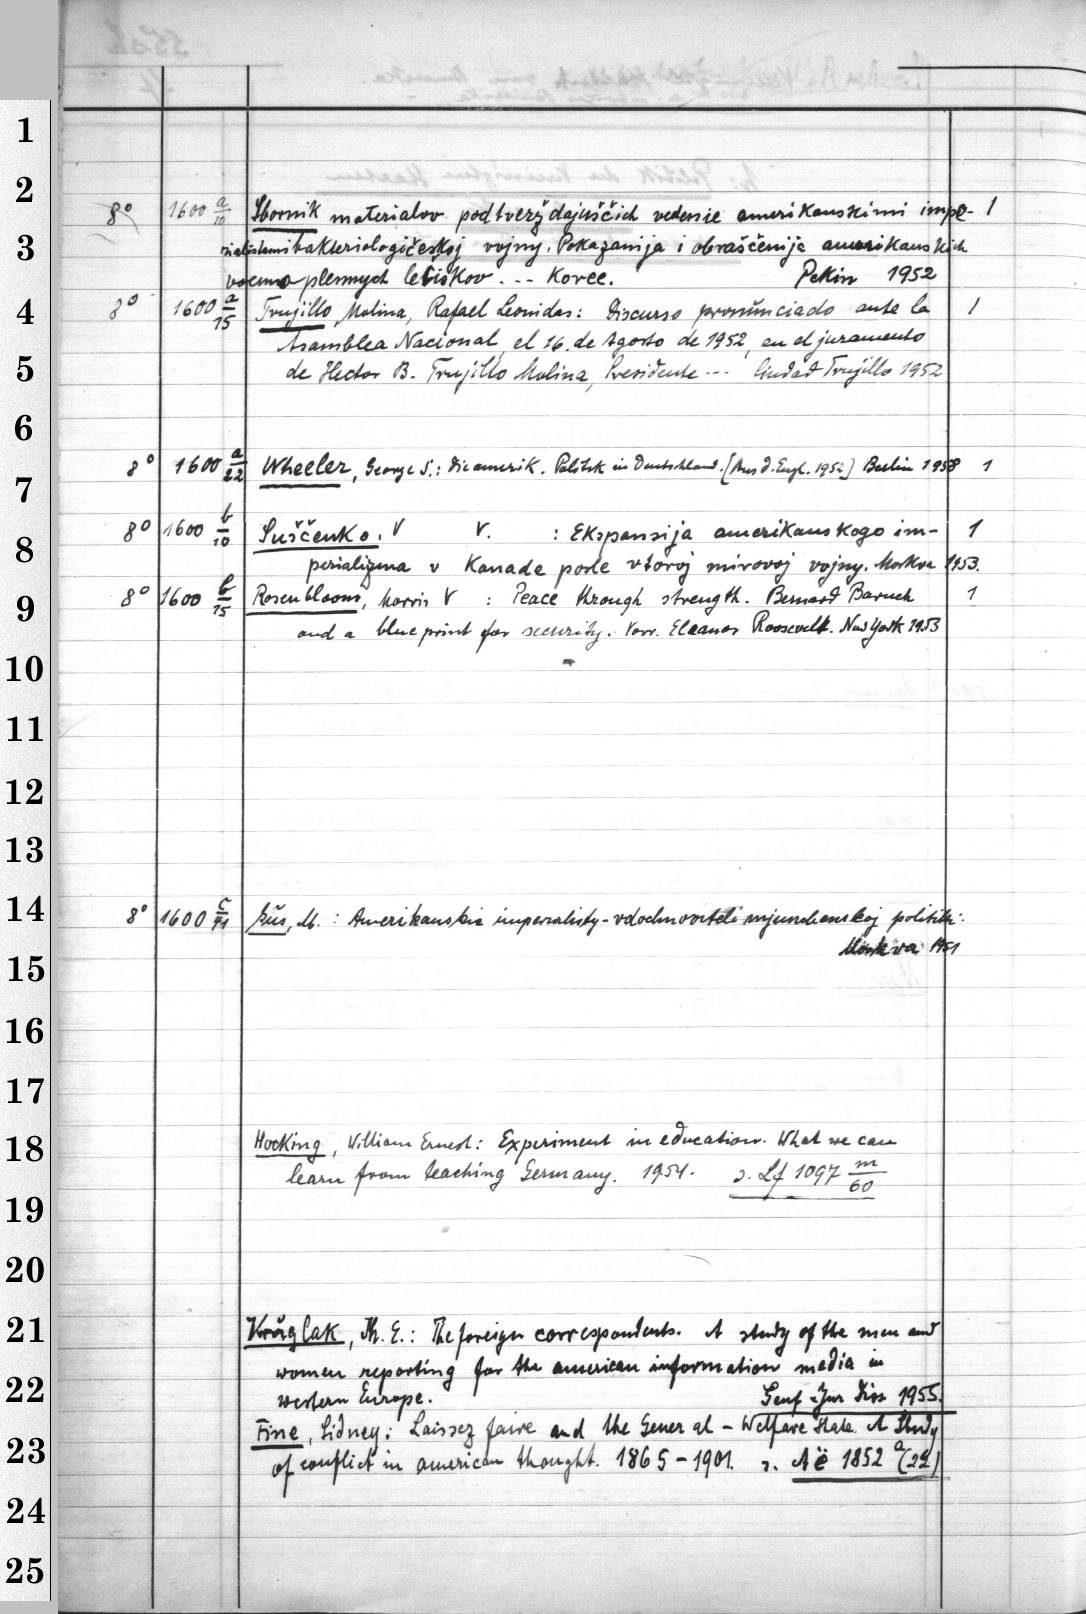 1
2
8° 1600 a/10 Sbornik materialov podtverždajuščich vedenie amerikanskimi impe- 1
3
rialistami bakteriologičeskoj vojny. Pokazanija i obraščenija amerikanskich
voenno plennych letčikov ... Koree. Pekin 1952
4
8° 1600 a/15 Trujillo Molina, Rafael Leonidas: Discurso pronunciado ante la 1
Asamblea Nacional, el 16. de Agosto de 1952, en el juramento
5
de Hector B. Trujillo Molina, Presidente --- Ciudad Trujillo 1952
6
8° 1600 a/22 Wheeler, George S.: Die amerik. Politik in Deutschland. [Aus d. Engl. 1952] Berlin 1958 1
7
8° 1600 b/10 Suščenko, V V. : Ekspansija amerikanskogo im- 1
8
perializma v Kanade posle vtoroj mirovoj vojny. Moskva 1953.
9
8° 1600 b/15 Rosenbloom, Morris V : Peace through strength. Bernard Baruch 1
and a blueprint for security. Vorr. Eleanor Roosevelt. New York 1953
10
11
12
13
14
8° 1600 c/41 Gus, M. : Amerikanskie imperialisty-vdochnoviteli mjunchenskoj politiki.
Moskva 1951
15
16
17
18
Hocking, William Ernest: Experiment in education. What we can
learn from teaching Germany. 1954. s. Lf 1097 m/60
19
20
21
Kruglak, Th. E.: The foreign correspondents. A study of the men and
women reporting for the american information media in
22
western Europe. Genf Jur Diss 1955.
Fine, Sidney: Laissez faire and the General-Welfare State. A Study
23
of conflict in american thought. 1865-1901. s. Aë 1852 a (22)
24
25